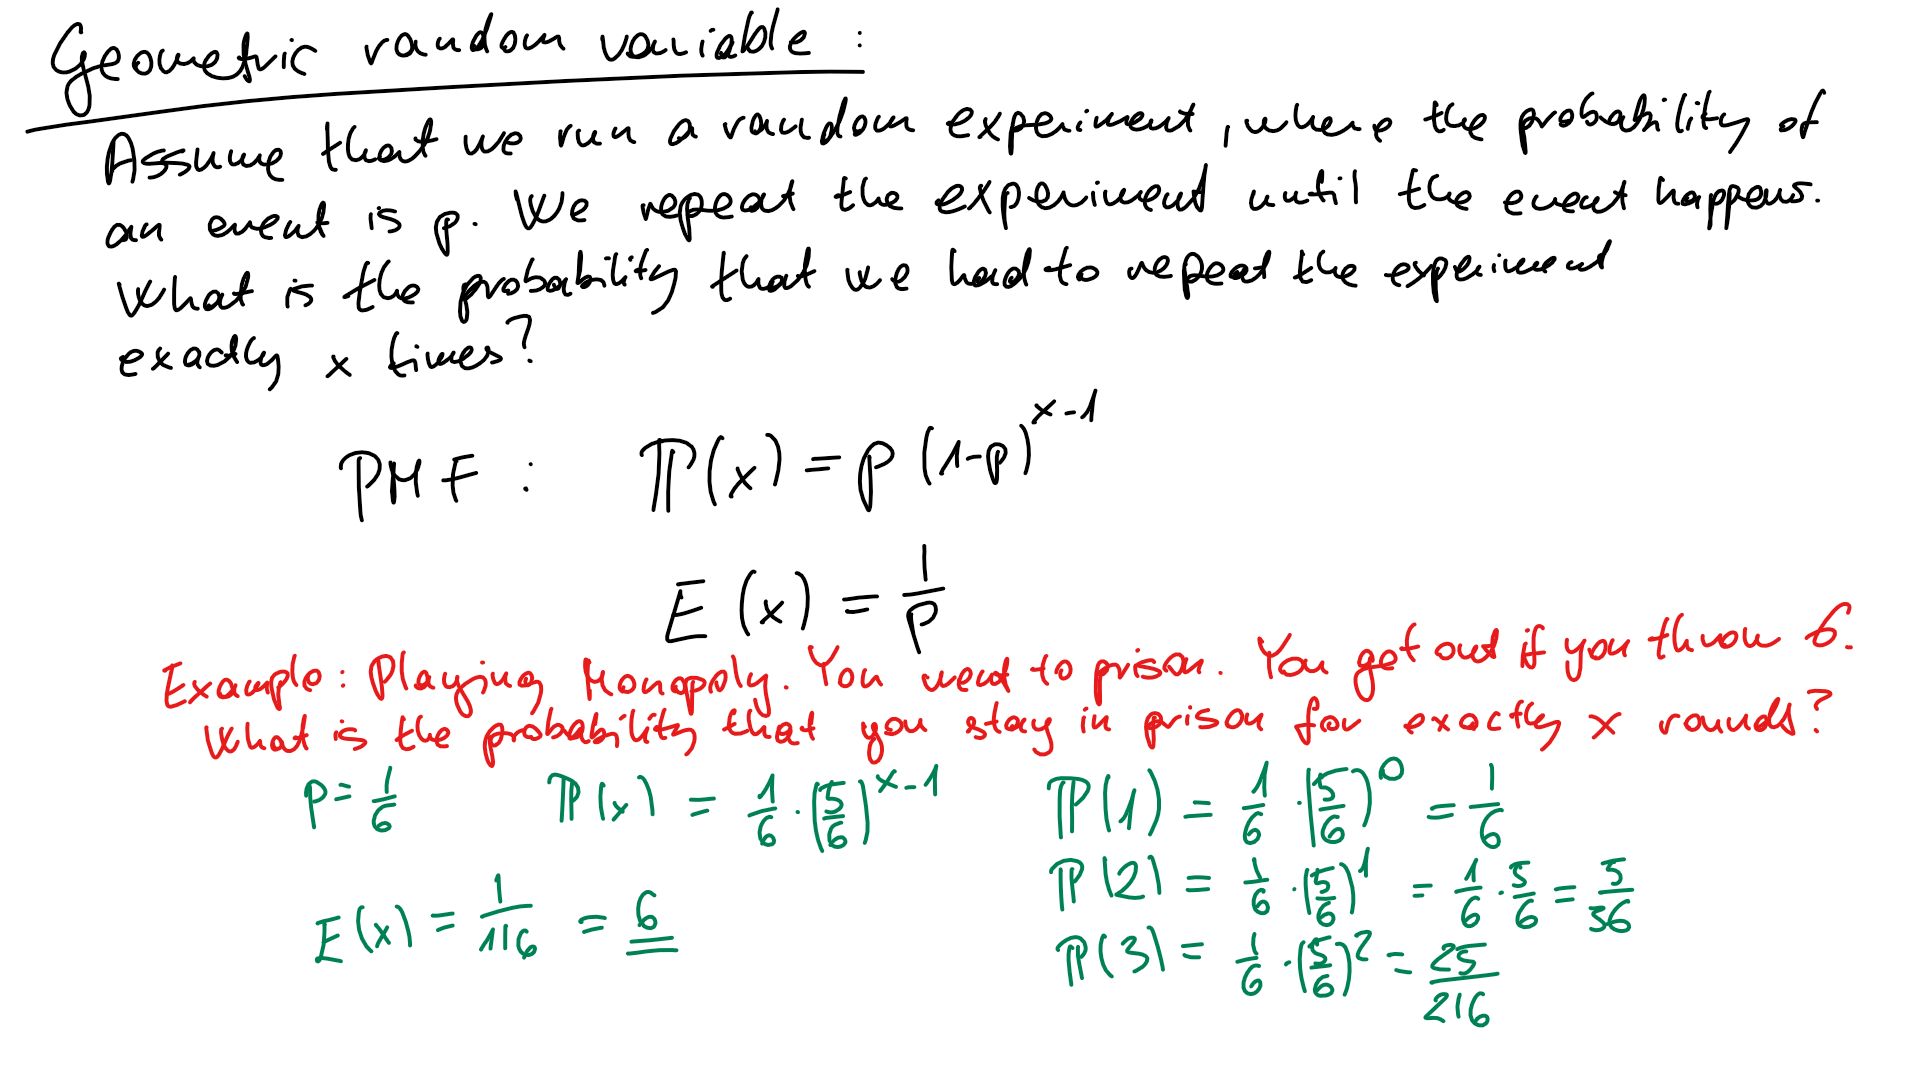 Geometric random variable :
Assume that we run a random experiment, where the probability of
an event is p. We repeat the experiment until the event happens.
What is the probability that we had to repeat the experiment
exactly x times?
PMF : ℙ(x) = p (1-p)^{x-1}
E (x) = 1/p
Example: Playing Monopoly. You went to prison. You get out if you throw 6.
What is the probability that you stay in prison for exactly x rounds?
p = 1/6 ℙ(x) = 1/6 · (5/6)^{x-1} ℙ(1) = 1/6 · (5/6)^0 = 1/6
ℙ(2) = 1/6 · (5/6)^1 = 1/6 · 5/6 = 5/36
E(x) = 1/(1/6) = 6 ℙ(3) = 1/6 · (5/6)^2 = 25/216